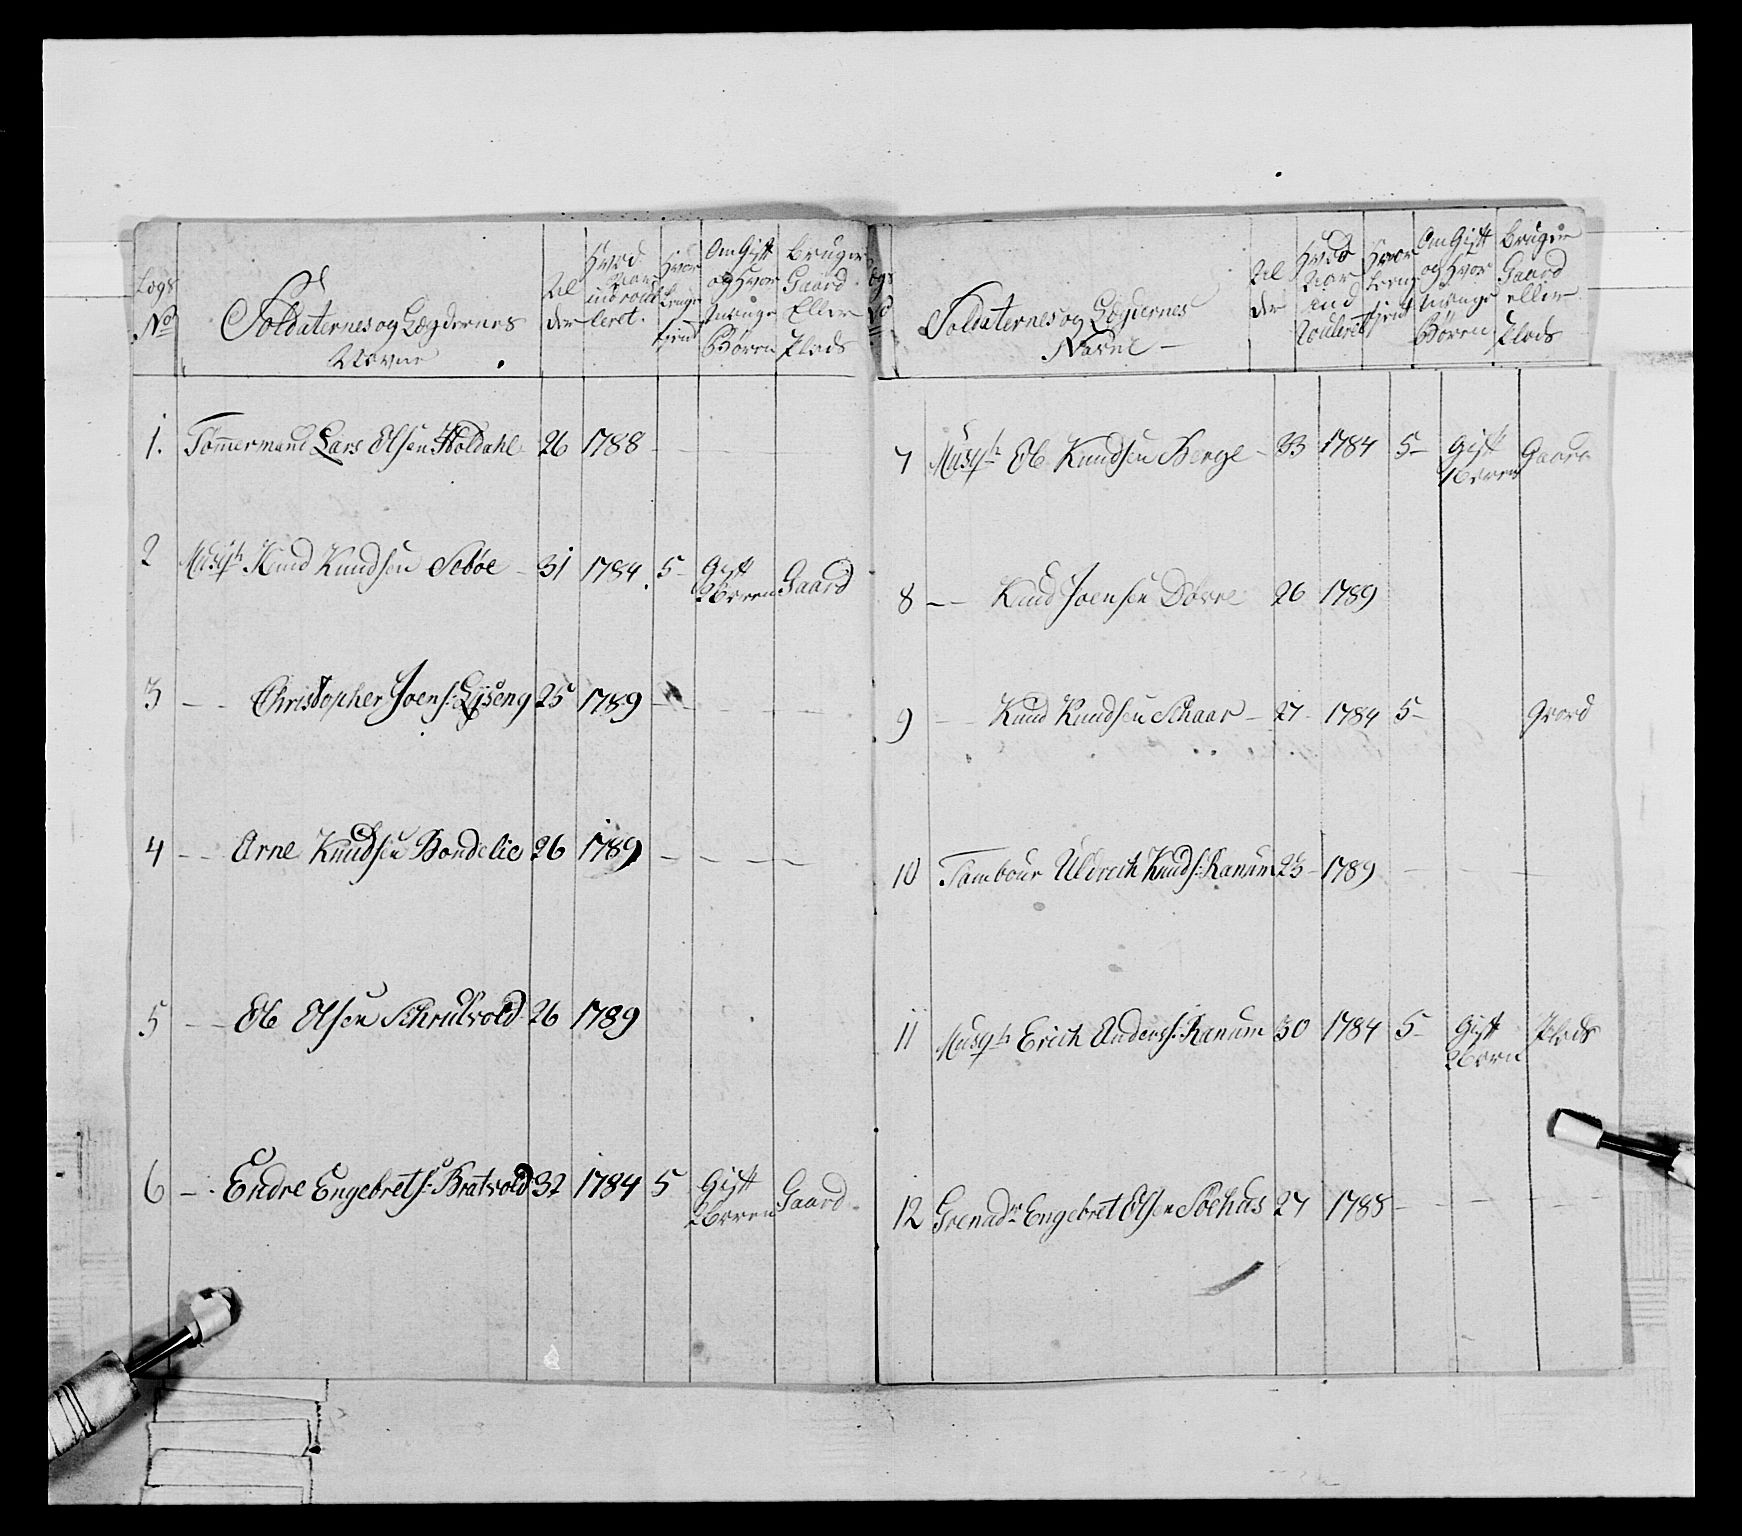 Legs No
Soldaternes og Lægdernes Navne
Alder
Hvad Aar indroulleret.
Hvor Lenge tjent
Om Gift og Hvor Mange Børen
Bruger Gaard Eller Plads
1. Tømermand Lars Olsen Holdahl 26 1788 - - - -
2 Musqtr Knud Knudsen Sebøe - 31 1784. 5- Gift 2 børren Gaard
3 - - Christopher Joens: Lÿseng 25 1789 - - - - -
4 - - Arne Knudsen Bondelie 26 1789 - - - -
5 - - Ole Olsen Schrutvold 26 1789
6 - - Endre Engebrets: Bratvold 32 1784 5 Gift 2 børren Gaard -
Soldaternes og Lægdernes Navne -
Alder
Hvad Aar ind Roulleret
Hvor leng tjent
Om Gift og Hvor Mange Børen
Bruger Gaard eller Plads
7 Musqtr Ole Knudsen Berge - 33 1784 5- Gift 1 børren Gaard
8 - - Knud Joensen Døvre 26 1789
9 - - Knud Knudsen Schaar - 27 - 1784 5- Gaard
10 Tambour Uldrich Knuds: Ranum 25 - 1789 - - - -
11 Musqtr Erich Anders: Ranum 30 1784 5- Gift 2 børn Plads
12 Grenadr Engebret Olsen Soehus 27 1788 - - - - -